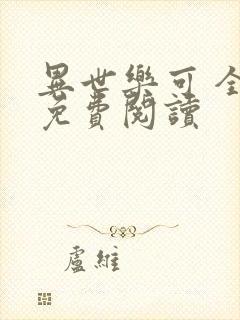 異世樂可全
免費閱讀
盧維